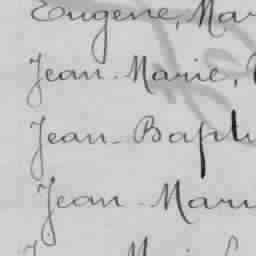 Eugène, Mar
Jean-Marie,
Jean-Bapti
Jean-Mari